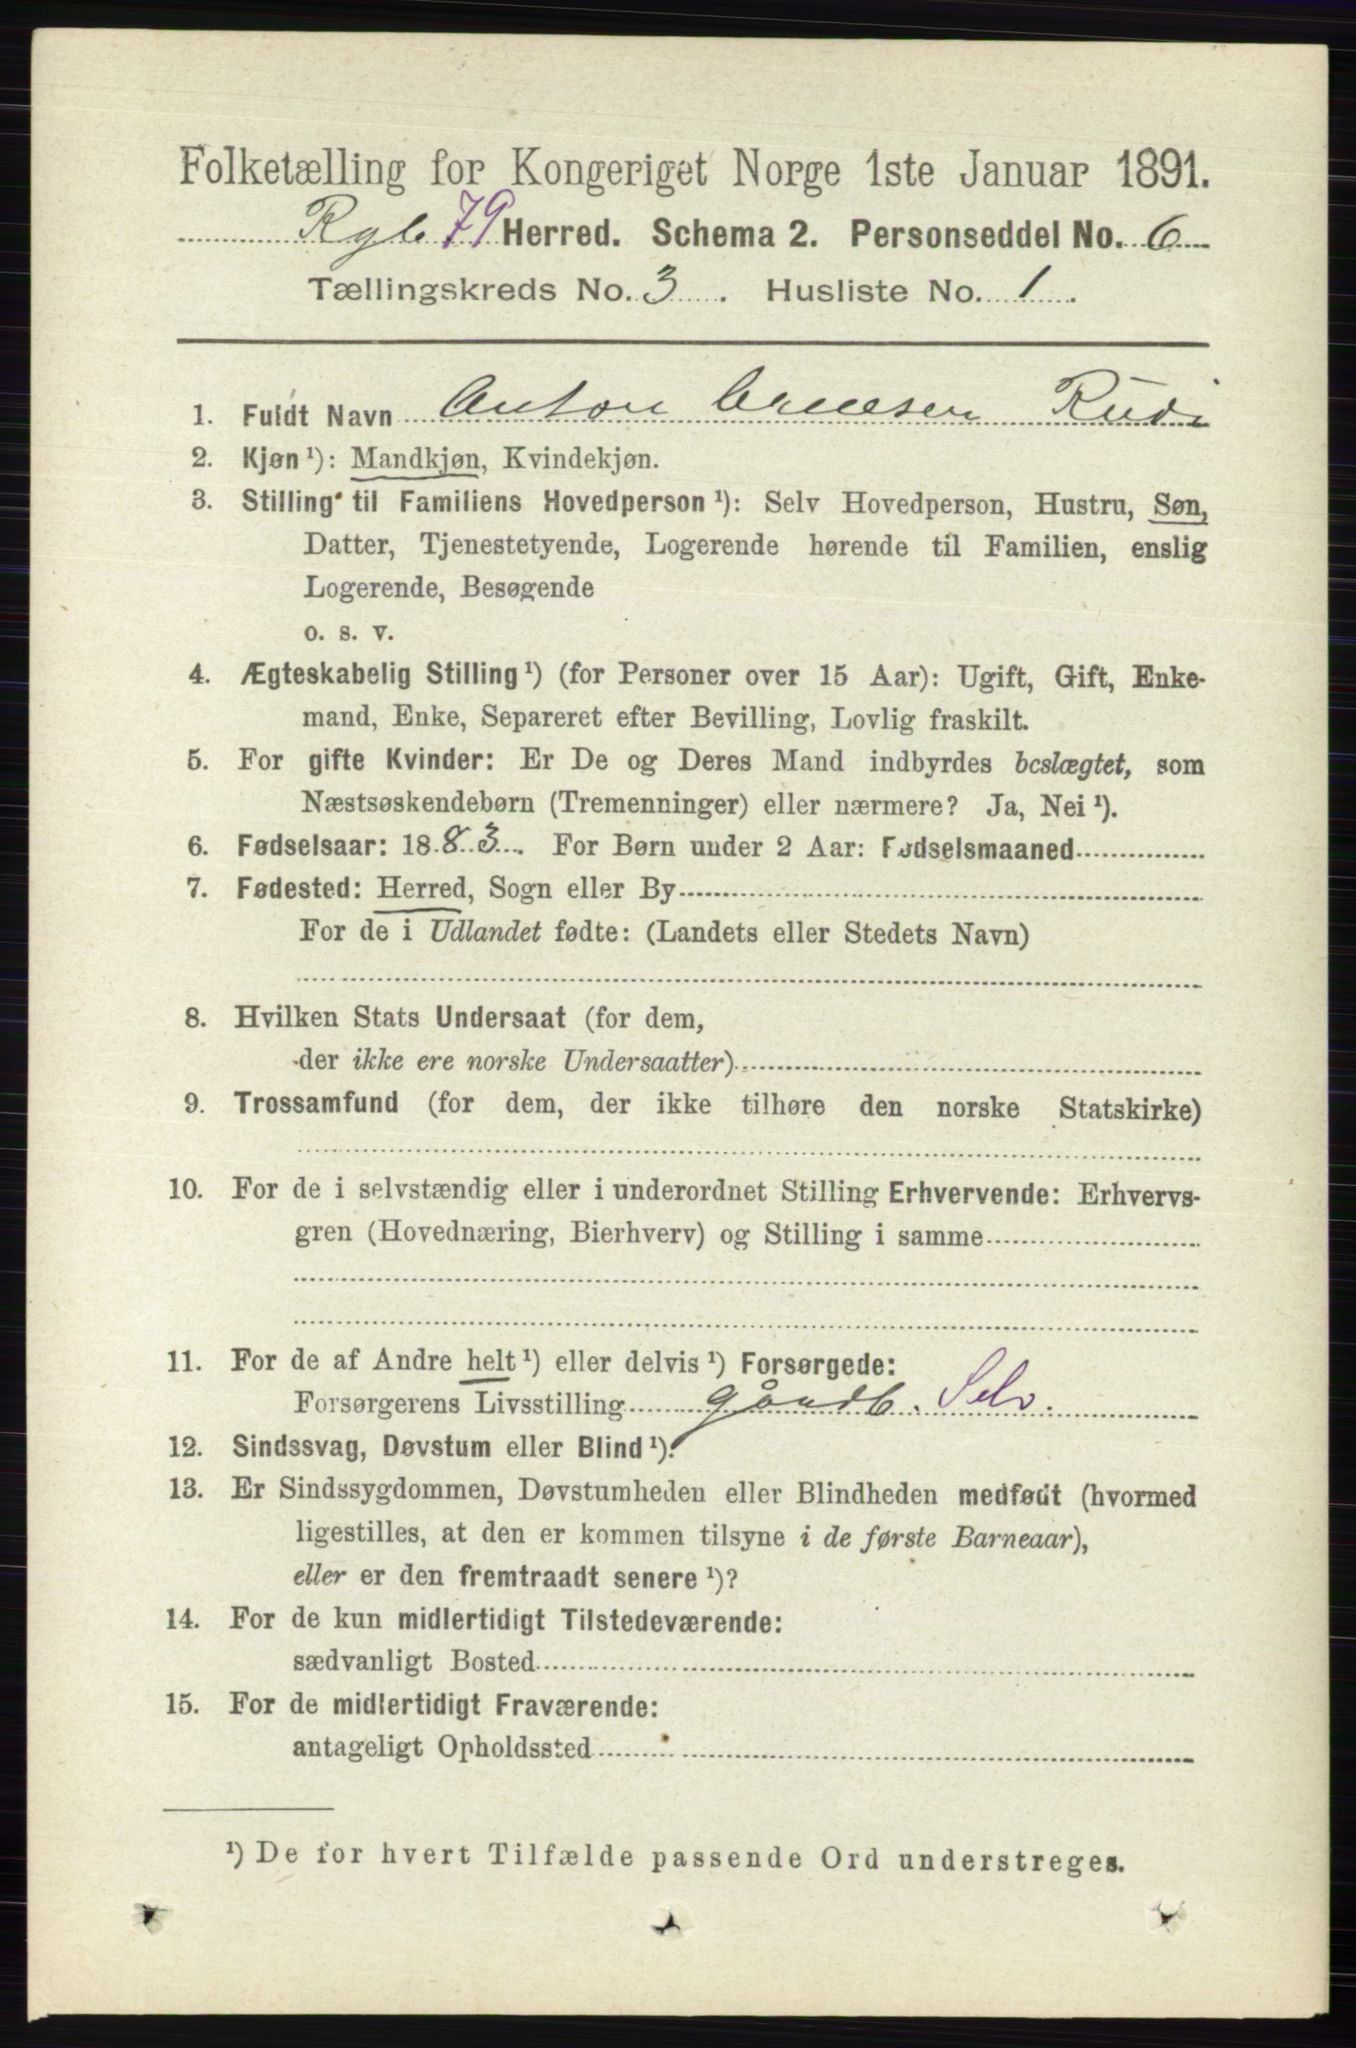 Folketælling for Kongeriget Norge 1ste Januar 1891.
79 Herred. Schema 2. Personseddel No. 6
Tællingskreds No. 3. Husliste No. 1.
1. Fuldt Navn Anton Rudi
2. Kjøn ¹): Mandkjøn, Kvindekjøn.
3. Stilling til Familiens Hovedperson ¹): Selv Hovedperson, Hustru, Søn,
Datter, Tjenestetyende, Logerende hørende til Familien, enslig
Logerende, Besøgende
o. s. v.
4. Ægteskabelig Stilling ¹) (for Personer over 15 Aar): Ugift, Gift, Enke-
mand, Enke, Separeret efter Bevilling, Lovlig fraskilt.
5. For gifte Kvinder: Er De og Deres Mand indbyrdes beslægtet, som
Næstsøskendebørn (Tremenninger) eller nærmere? Ja, Nei ¹).
6. Fødselsaar: 1883. For Børn under 2 Aar: Fødselsmaaned
7. Fødested: Herred, Sogn eller By
For de i Udlandet fødte: (Landets eller Stedets Navn)
8. Hvilken Stats Undersaat (for dem,
der ikke ere norske Undersaatter)
9. Trossamfund (for dem, der ikke tilhøre den norske Statskirke)
10. For de i selvstændig eller i underordnet Stilling Erhvervende: Erhvervs-
gren (Hovednæring, Bierhverv) og Stilling i samme
11. For de af Andre helt ¹) eller delvis ¹) Forsørgede:
Forsørgerens Livsstilling gårdb. Selv.
12. Sindssvag, Døvstum eller Blind ¹).
13. Er Sindssygdommen, Døvstumheden eller Blindheden medfødt (hvormed
ligestilles, at den er kommen tilsyne i de første Barneaar),
eller er den fremtraadt senere ¹)?
14. For de kun midlertidigt Tilstedeværende:
sædvanligt Bosted
15. For de midlertidigt Fraværende:
antageligt Opholdssted
¹) De for hvert Tilfælde passende Ord understreges.